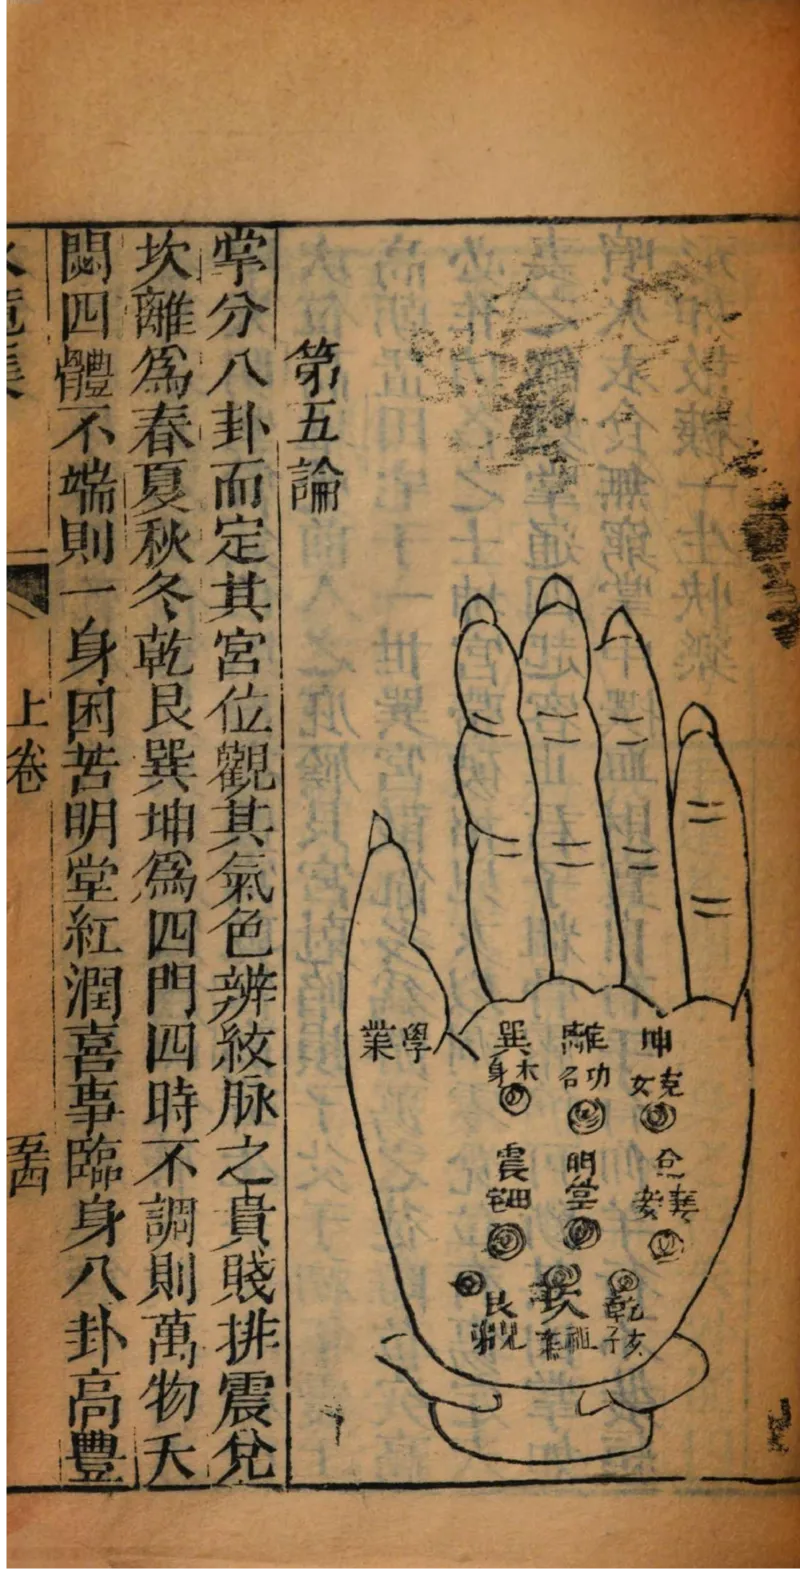 坤
離
功名
明堂
坎
乾
巽
震
艮
學業
第五論
掌分八卦而定其宮位觀其氣色辨紋脉之貴賤排震兌
坎離爲春夏秋冬乾艮巽坤爲四門四時不調則萬物夭
閼四體不端則一身困苦明堂紅潤喜事臨身八卦高豐
上卷